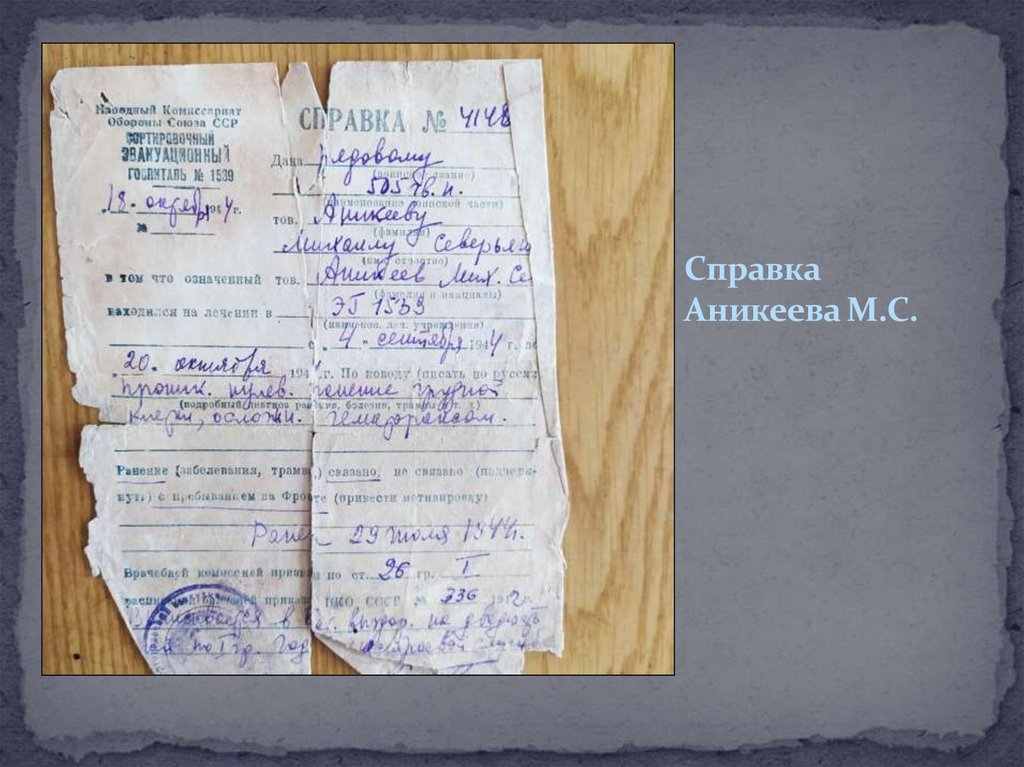 Народный Комиссариат
Обороны Союза ССР
СОРТИРОВОЧНЫЙ
ЭВАКУАЦИОННЫЙ
ГОСПИТАЛЬ № 1539
18. октября 1944 г.
№
СПРАВКА № 4148
Дана рядовому
(воинское звание)
505
(наименование воинской части)
тов. Аникееву
(фамилия)
Михаилу Северьян
(имя, отчество)
в том что означенный тов. Аникеев Мих. Се
(фамилия и инициалы)
находился на лечении в ЭГ 1539
(наименов. леч. учреждения)
с 4. сентября 1944 г. по
20. октября 194 г. По поводу (писать по русски
проник. пулев. ранение грудной
(подробный диагноз ранения, болезни, травмы и т. д.)
клетки, осложн. гемотораксом.
Ранение (заболевания, травмы) связано, не связано (подчерк-
нуть) с пребыванием на Фронте (привести мотивировку)
Ранен 29 июля 1944г.
Врачебной комиссией признан по ст. 26 гр. I
расписания болезней приказа НКО СССР № 336 1942 г.
в бат. выздор. на
по I гр. Годен нестроевой службе
Справка
Аникеева М.С.